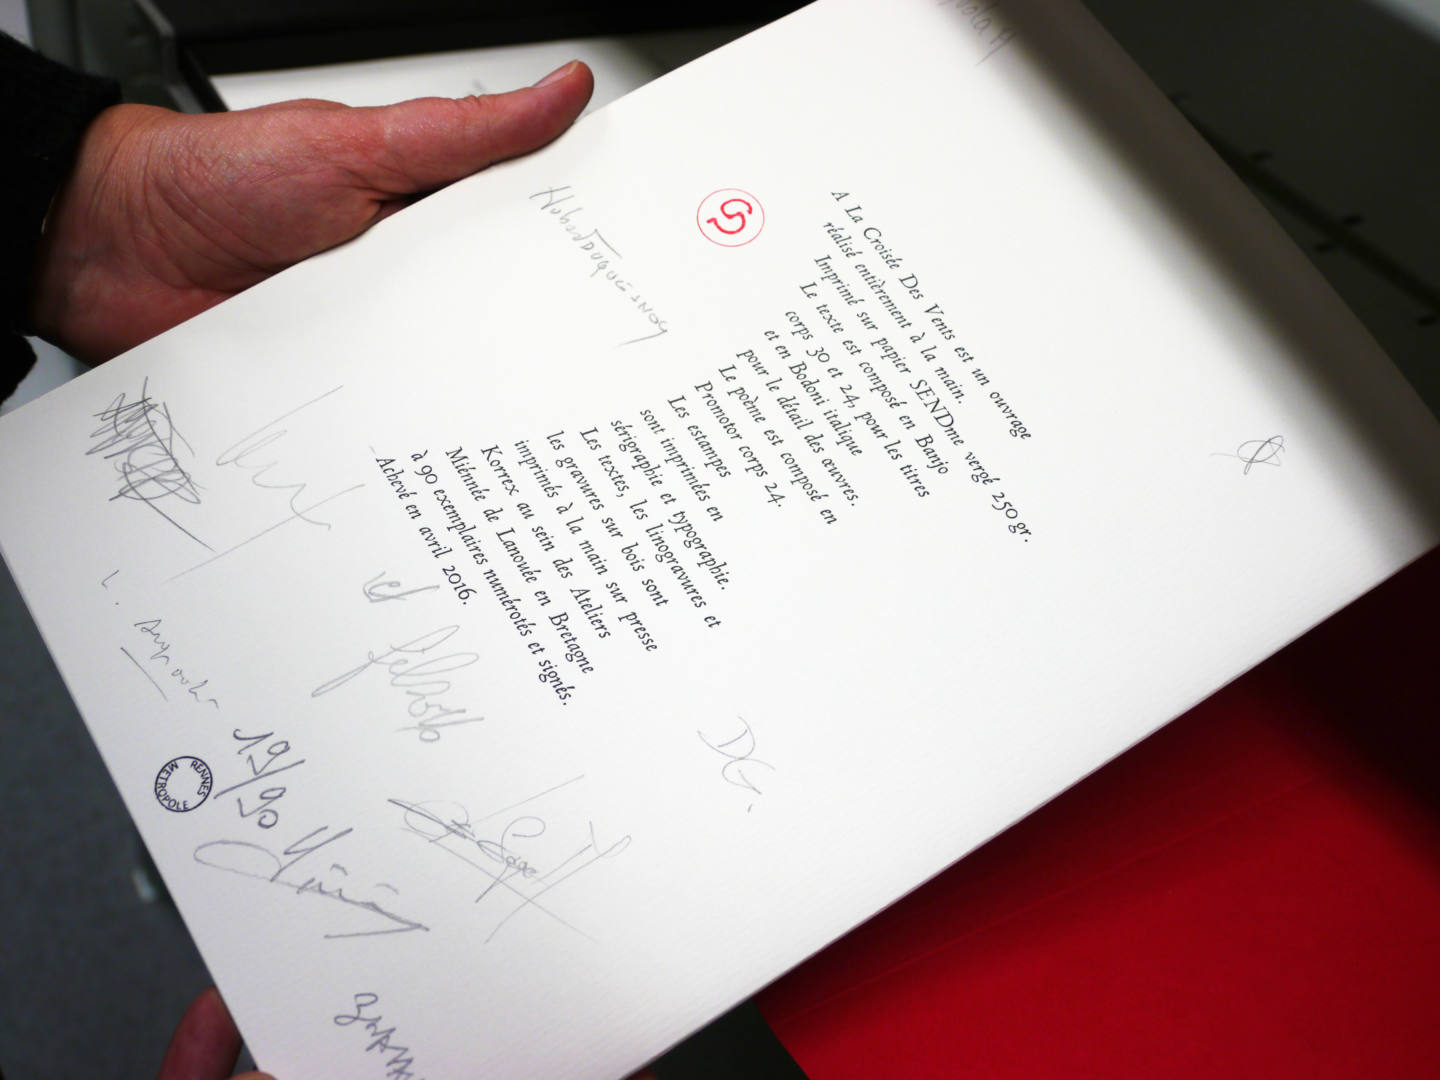 A La Croisée Des Vents est un ouvrage
réalisé entièrement à la main.
Imprimé sur papier SENDme vergé 250 gr.
Le texte est composé en Banjo
corps 30 et 24, pour les titres
et en Bodoni italique
pour le détail des œuvres.
Le poème est composé en
Promotor corps 24.
Les estampes
sont imprimées en
sérigraphie et typographie.
Les textes, les linogravures et
les gravures sur bois sont
imprimés à la main sur presse
Korrex au sein des Ateliers
Miénnée de Lanouée en Bretagne
à 90 exemplaires numérotés et signés.
Achevé en avril 2016.
DG.
19/90
RENNES
METROPOLE